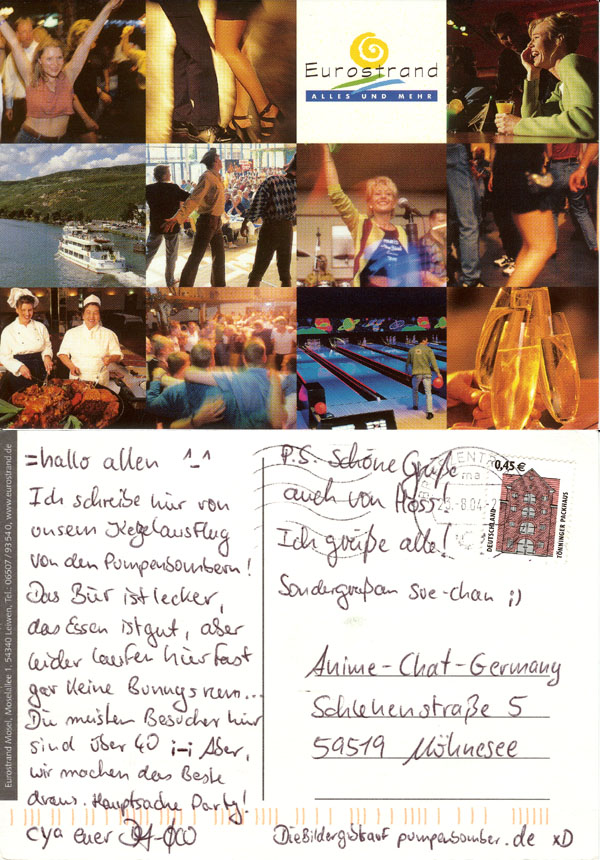 Eurostrand
ALLES UND MEHR
Eurostrand Mosel, Moselallee 1, 54340 Leiwen, Tel.: 06507 / 93 54 0, www.eurostrand.de
=hallo allen ^_^
Ich schreibe hier von
unsem Kegelausflug
von den Pumpenbombern!
Das Bier ist lecker,
das Essen ist gut, aber
leider laufen hier fast
gar keine Bunnys rum...
Die meisten Besucher hier
sind über 40 i-i Aber,
wir machen das Beste
draus. Hauptsache Party!
cya euer
P.S. Schöne Grüße
auch von Hossi!
Ich grüße alle!
Sondergruß an Sue-chan ;)
0,45 €
DEUTSCHLAND
TÖNNINGER PACKHAUS
Anime-Chat-Germany
Schlehenstraße 5
59519 Möhnesee
Die Bilder gibts auf pumpenbomber.de xD